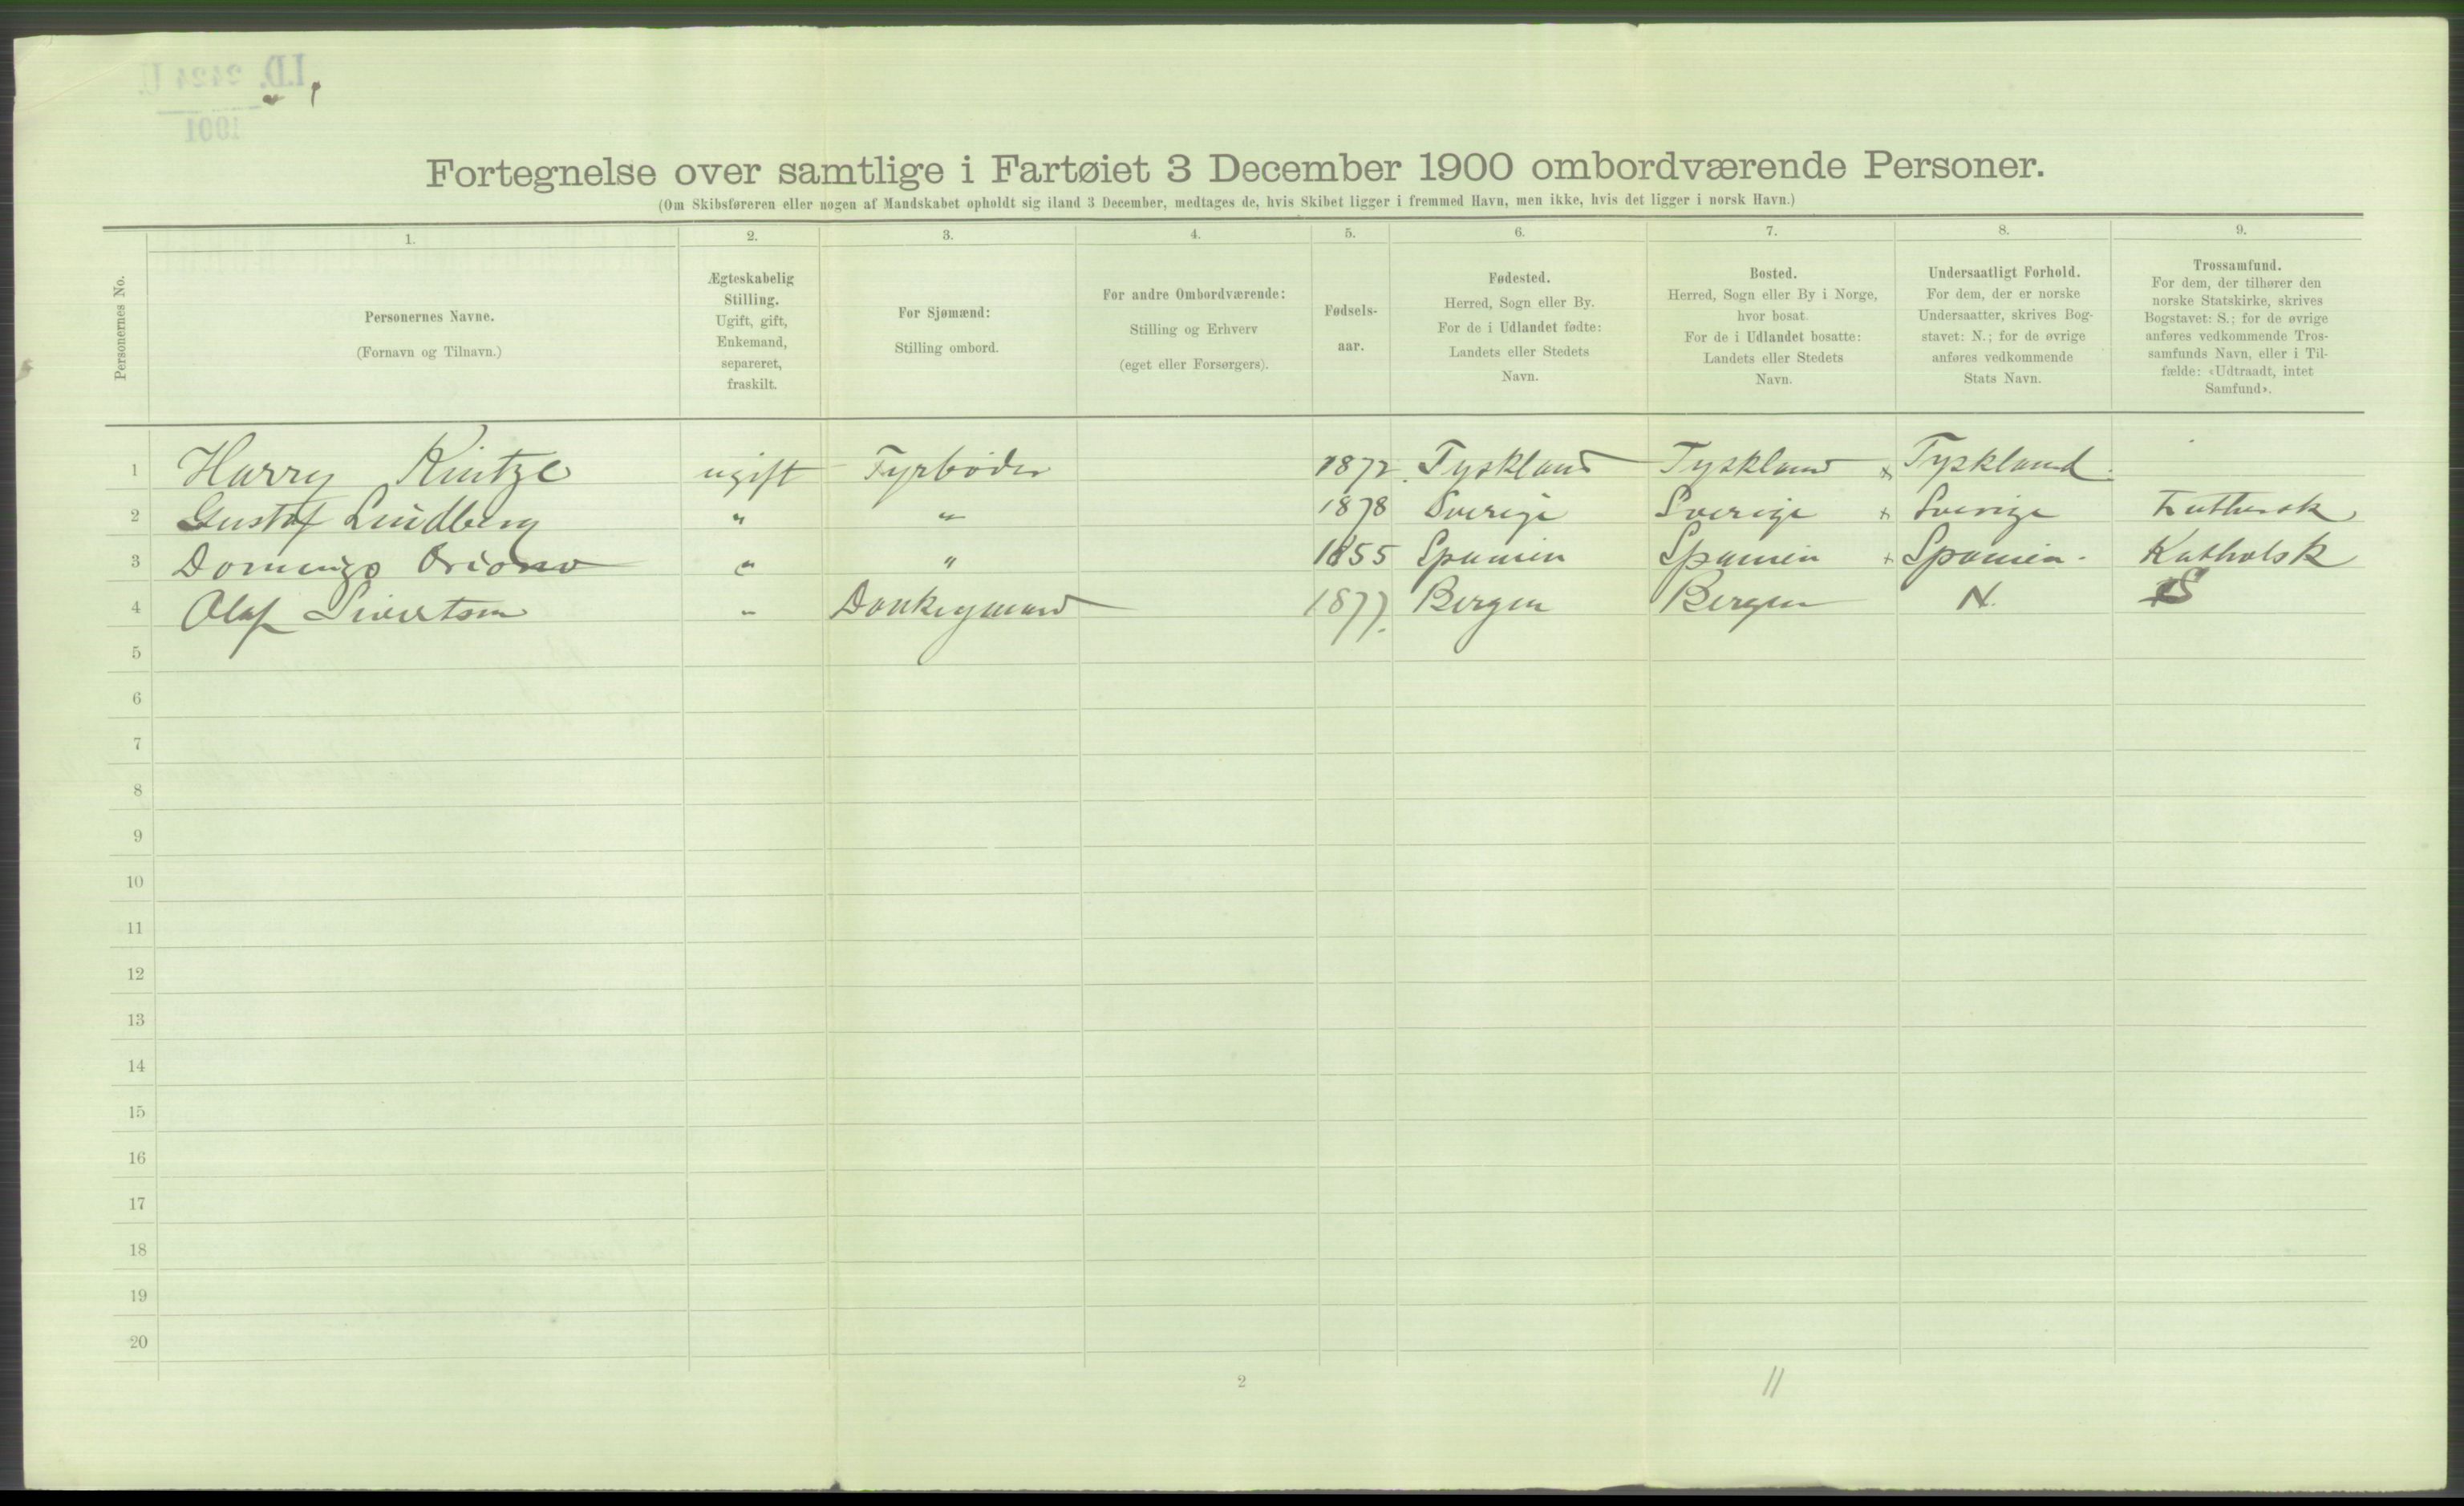 I.D. 2424 U
1901
Fortegnelse over samtlige i Fartøiet 3 December 1900 ombordværende Personer.
(Om Skibsføreren eller nogen af Mandskabet opholdt sig iland 3 December, medtages de, hvis Skibet ligger i fremmed Havn, men ikke, hvis det ligger i norsk Havn.)
Personernes No.
1.
Personernes Navne.
(Fornavn og Tilnavn.)
2.
Ægteskabelig
Stilling.
Ugift, gift,
Enkemand,
separeret,
fraskilt.
3.
For Sjømænd:
Stilling ombord.
4.
For andre Ombordværende:
Stilling og Erhverv
(eget eller Forsørgers).
5.
Fødsels-
aar.
6.
Fødested.
Herred, Sogn eller By.
For de i Udlandet fødte:
Landets eller Stedets
Navn.
7.
Bosted.
Herred, Sogn eller By i Norge,
hvor bosat.
For de i Udlandet bosatte:
Landets eller Stedets
Navn.
8.
Undersaatligt Forhold.
For dem, der er norske
Undersaatter, skrives Bog-
stavet: N.; for de øvrige
anføres vedkommende
Stats Navn.
9.
Trossamfund.
For dem, der tilhører den
norske Statskirke, skrives
Bogstavet: S.; for de øvrige
anføres vedkommende Tros-
samfunds Navn, eller i Til-
fælde: «Udtraadt, intet
Samfund».
1 Harry Kintze ugift Fyrbøder 1872 Tyskland Tyskland x Tyskland
2 Gustaf Lindberg " " 1878 Sverige Sverige x Sverige Luthersk
3 Domingo " " 1855 Spanien Spanien x Spanien. Katholsk
4 Olaf Sivertsen " Donkeymand 1877. Bergen Bergen N. S
5
6
7
8
9
10
11
12
13
14
15
16
17
18
19
20
2
11